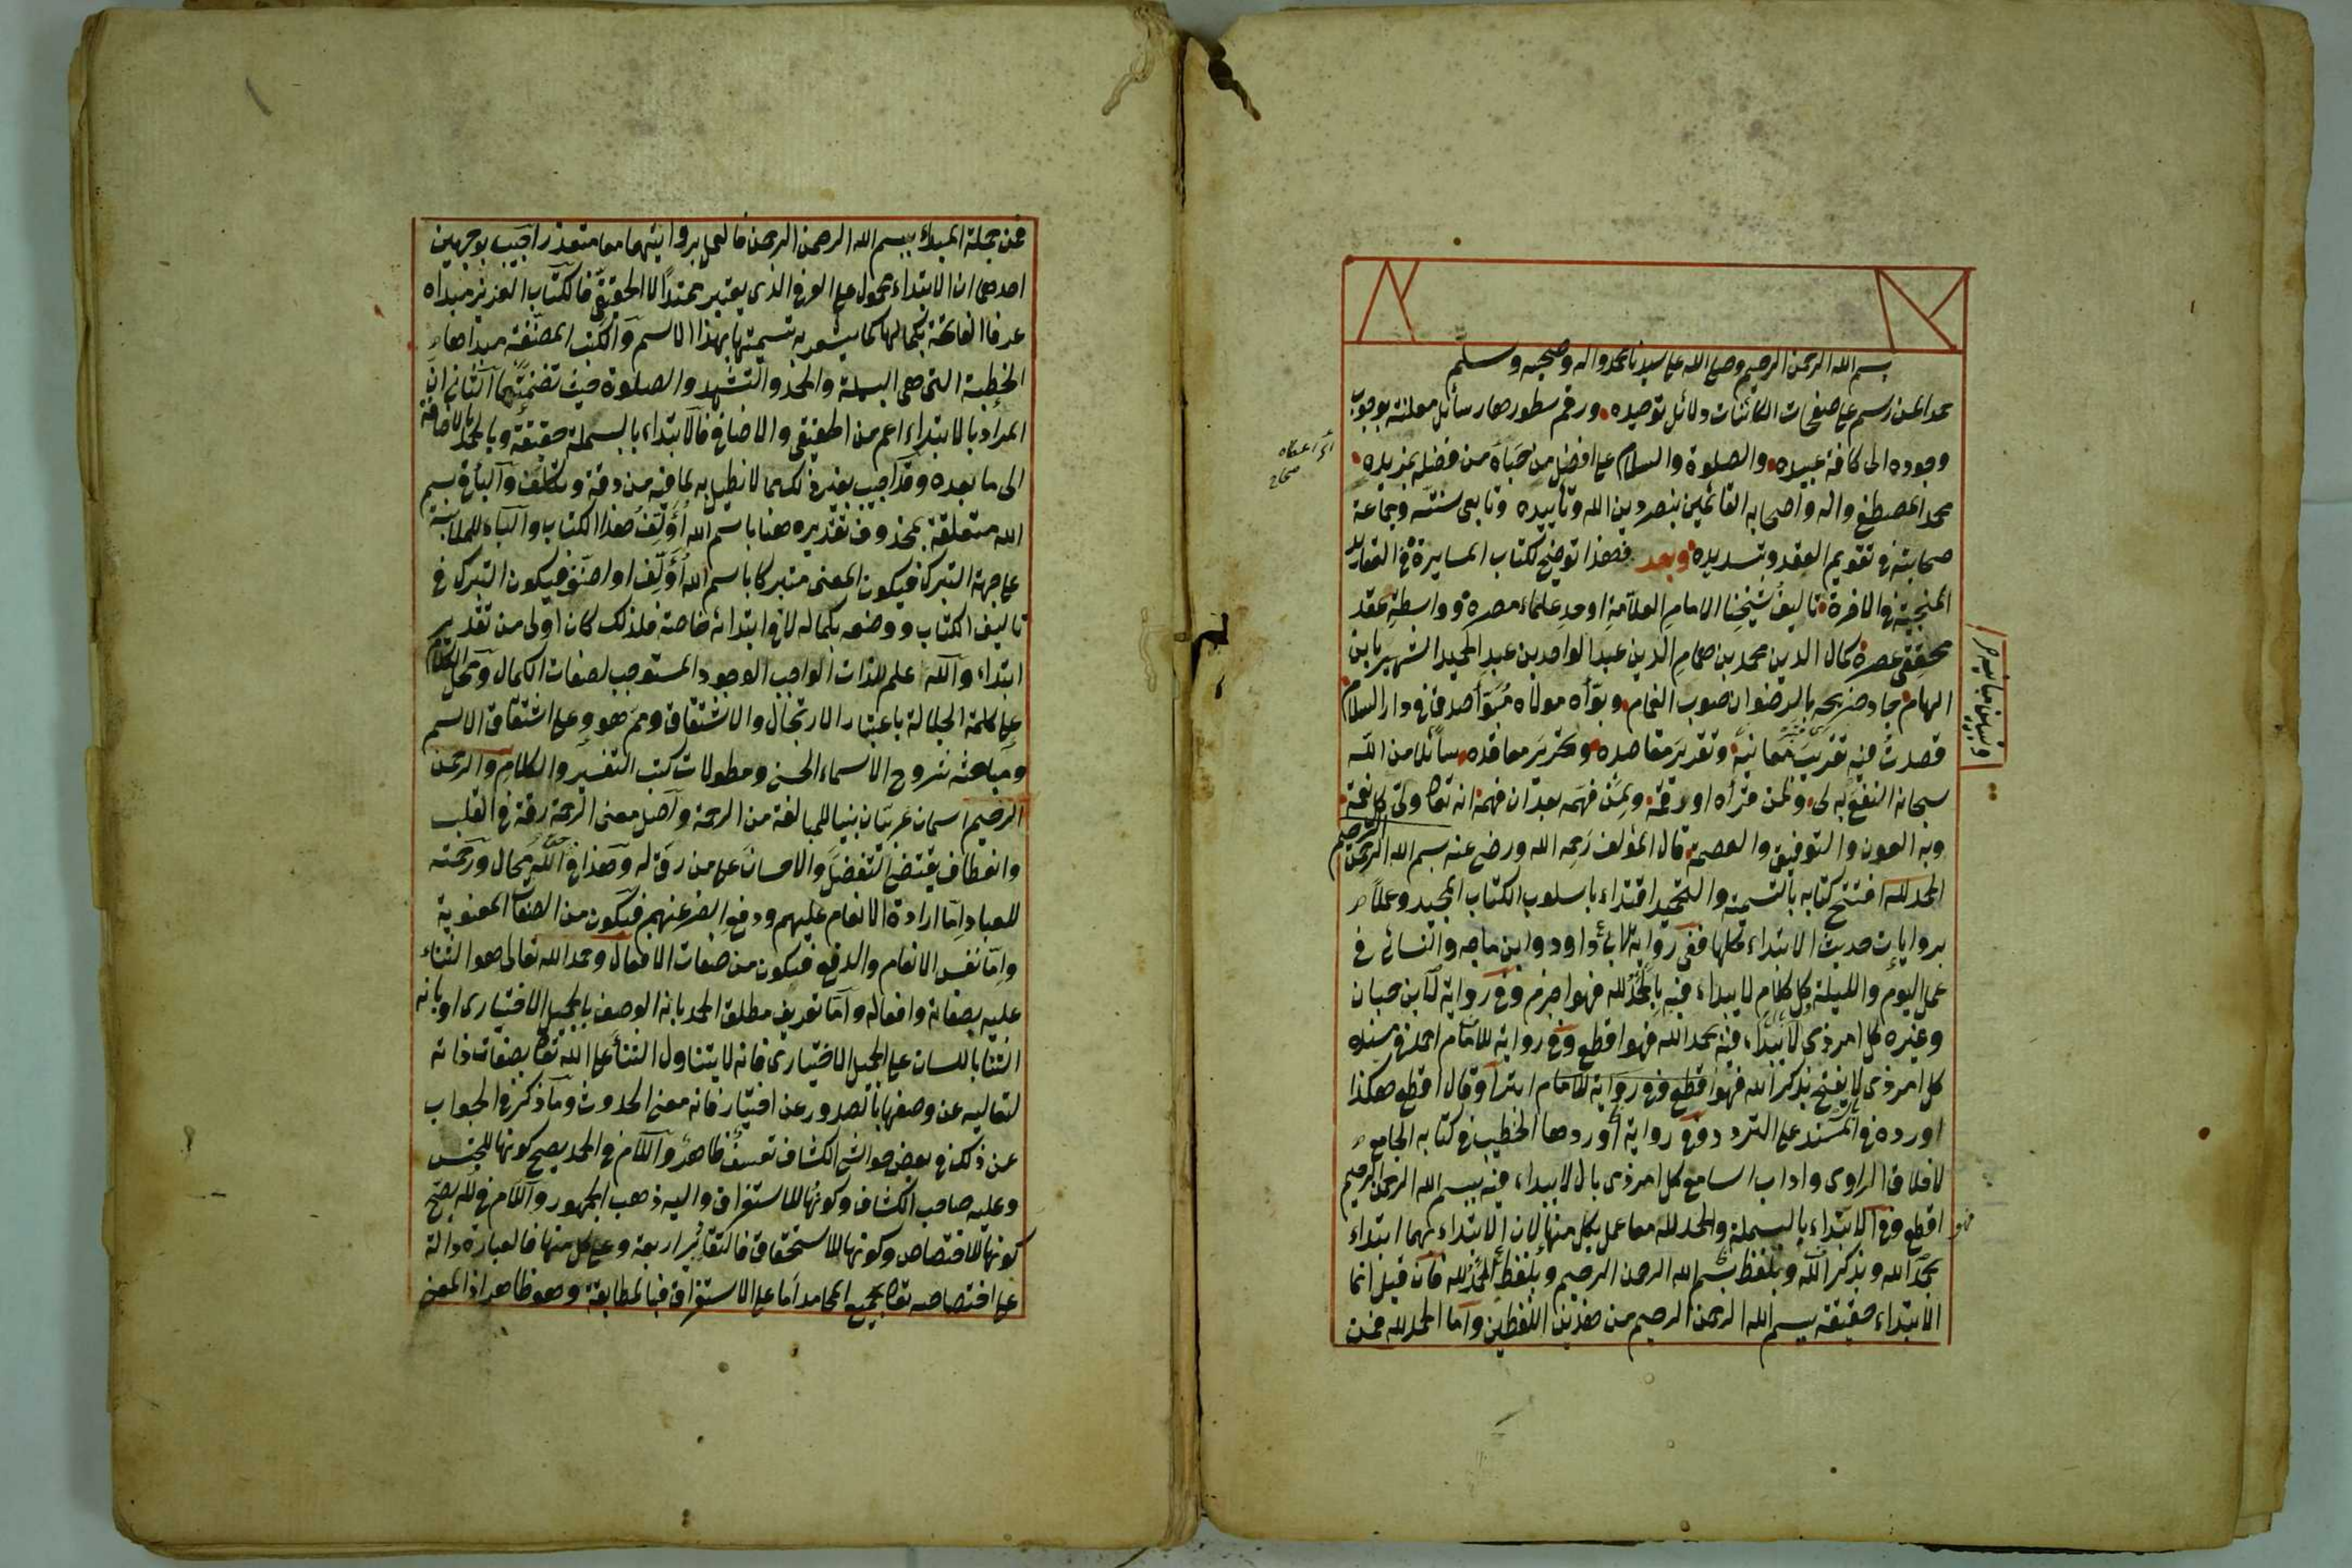 بسم الله الرحمن الرحيم وصلى الله على سيدنا محمد واله وصحبه وسلم
حمدا لمن رسم على صفحات الكائنات دلائل توحيده ورقم سطورها رسائل معلنة بوجوب
وجوده الى كافة عبيده والصلوة والسلام على افضل من حباه من فضله بمزيده
اى اعطاه
صحاح
محمد المصطفى واله واصحابه القائمين بنصر دين الله وتأييده وتابعى سنته وجماعة
صحابته فى تقويم العقد وتسديده وبعد فهذا توضيح لكتاب المسايرة فى العقائد
المنجية فى الاخرة تاليف شيخنا الامام العلامة اوحد علماء مصره وواسطة عقد
محققى عصره كمال الدين محمد بن همام الدين عبد الواحد بن عبد الحميد الشهير بابن
الهمام جاد ضريحه بالرضوان صوب الغمام وبوأه مولاه مبوأ صدق فى دار السلام
قصدت فيه تقريب معانيه وتقرير مقاصده وتحرير معاقده سائلا من الله
وتبيين مبانيه
سبحانه النفع به لى ولمن قرأه او رقمه ولمن فهمه بعد ان فهمه انه تعالى ولى كل نعمة
وبه العون والتوفيق والعصمة قال المؤلف رحمه الله ورضى عنه بسم الله الرحمن الرحيم
الحمد لله افتتح كتابه بالتسمية والتحميد اقتداء باسلوب الكتاب المجيد وعملا
بروايات حديث الابتداء كلها ففى رواية لابى داود وابن ماجه والنسائى فى
عمل اليوم والليلة كل كلام لا يبداء فيه بالحمد لله فهو اجزم وفى رواية لابن حبان
وغيره كل امر ذى لا يبدأ فيه بحمد الله فهو اقطع وفى رواية للامام احمد فى مسنده
كل امر ذى لا يفتح بذكر الله فهو اقطع وفى رواية للامام ابتر او قال اقطع هكذا
اورده فى المسند على التردد وفى رواية اوردها الخطيب فى كتابه الجامع
لاخلاق الراوى واداب السامع كل امر ذى بال لا يبداء فيه ببسم الله الرحمن الرحيم
فهو اقطع وفى الابتداء بالبسملة والحمد لله معا عمل بكل منها لان الابتداء بهما ابتداء
بحمد الله وبذكر الله وبلفظ بسم الله الرحمن الرحيم وبلفظ الحمد لله فان قيل انما
الابتداء حقيقة ببسم الله الرحمن الرحيم من هذين اللفظين واما الحمد لله فمن
فمن جملة المبدؤ ببسم الله الرحمن الرحمن فالعمل بروايتهما معا متعذر اجيب بوجهين
احدهما ان الابتداء محمول على العرفى الذى يعتبر ممتدا لا الحقيقى فالكتاب العزيز مبداه
عرفا الفاتحة بكمالها كما يشعر به تسميتها بهذا الاسم والكتب المصنفة مبداها
الخطبة التى هى البسملة والحمد والتشهد والصلوة حيث تضمنتهما الثانى ان
المراد بالابتداء اعم من الحقيقى والاضافى فالابتداء بالبسملة حقيقة وبالحمد بالاضافة
الى ما بعده وقد اجيب بغير ذلك مما لا نطيل به لما فيه من دقة وتكلف والباء فى بسم
الله متعلقة بمحذوف تقديره هنا باسم الله اؤلف هذا الكتاب والباء للملابسة
على جهة التبرك فيكون المعنى متبركا باسم الله اؤلف او اصنف فيكون التبرك فى
تاليف الكتاب ووضعه بكماله لا فى ابتدائه خاصة فلذلك كان اولى من تقدير
ابتداء والله علم للذات الواجب الوجود المستوجب لصفات الكمال ومحل الكلام
على كلمة الجلالة باعتبار الارتجال والاشتقاق ومم هو وعلى اشتقاق الاسم
ومباحثه شروح الاسماء الحسنى ومطولات كتب التفسير والكلام والرحمن
الرحيم اسمان عربيان بنيا للمبالغة من الرحمة واصل معنى الرحمة رقة فى القلب
وانعطاف يقتضى التفضل والاحسان على من رق له وهذا فى حق الله محال ورحمته
للعباد اما ارادة الانعام عليهم ودفع الضر عنهم فيكون من الصفات المعنوية
واما نفس الانعام والدفع فيكون من صفات الافعال وحمد الله تعالى هو الثناء
عليه بصفاته وافعاله واما تعريف مطلق الحمد بانه الوصف بالجميل الاختيارى او بانه
الثنا باللسان على الجميل الاختيارى فانه لا يتناول الثنأ على الله تعالى بصفات ذاته
لتعاليه عن وصفها بالصدور عن اختيار فانه معنى الحدوث وما ذكر فى الجواب
عن ذلك فى بعض حواشى الكشاف تعسف ظاهر واللام فى الحمد يصح كونها للجنس
وعليه صاحب الكشاف وكونها للاستغراق واليه ذهب الجمهور واللام فى لله يصح
كونها للاختصاص وكونها للاستحقاق فالتقادير اربعة وعلى كل منها فالعبارة دالة
على اختصاصه تعالى بجميع المحامد اما على الاستغراق فبالمطابقة وهو ظاهر اذ المعنى